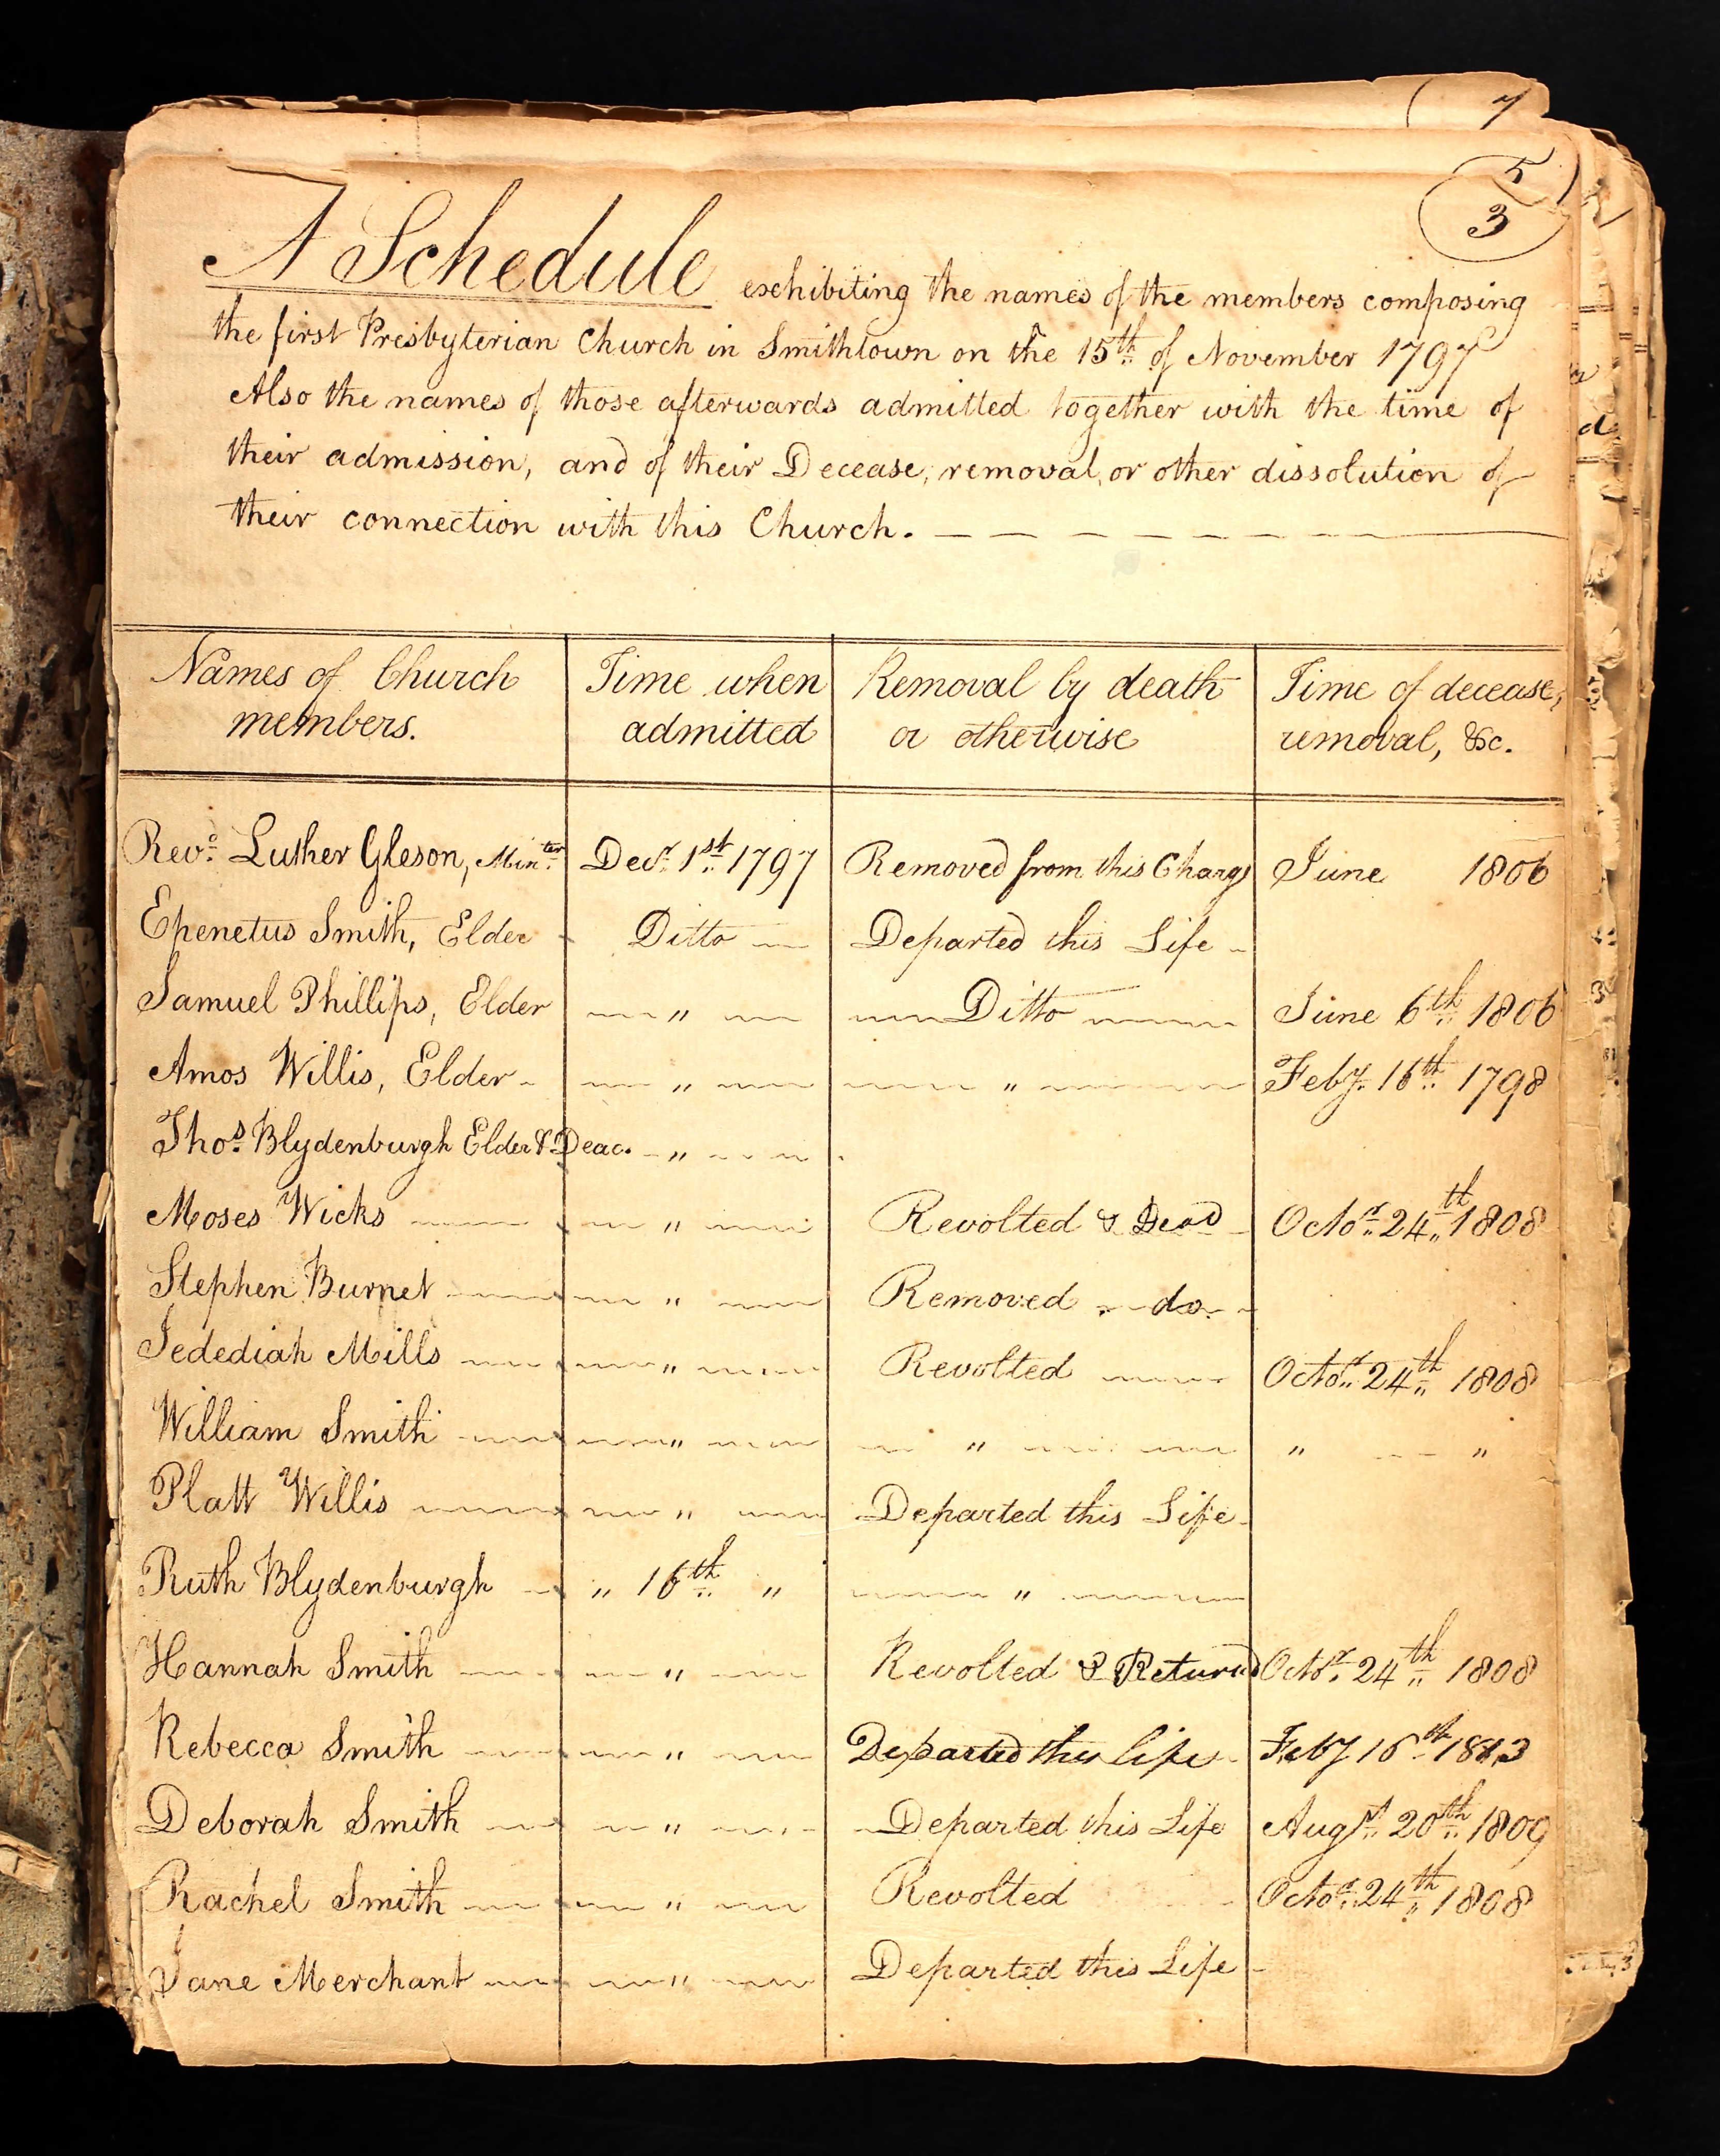 7
5
3
A Schedule exhibiting the names of the members composing
the first Presbyterian Church in Smithtown on the 15th of November 1797
Also the names of those afterwards admitted together with the time of
their admission, and of their Decease, removal, or other dissolution of
their connection with this Church. — — — — — — —
Names of Church members. Time when admitted Removal by death or otherwise Time of decease, removal, &c.
Revd. Luther Gleson, Minter. Decr. 1st. 1797 Removed from this Charge June 1806
Epenetus Smith, Elder Ditto — Departed this Life -
Samuel Phillips, Elder — " — — Ditto — June 6th. 1806
Amos Willis, Elder - — " — — " — Feby. 16th. 1798
Thos. Blydenburgh Elder & Deac. - " - - -
Moses Wicks — — " — Revolted & Dead Octor. 24th. 1808
Stephen Burnet — — " — Removed - do. -
Jedediah Mills — — " — Revolted — Octor. 24th. 1808
William Smith — — " — — " — " — "
Platt Willis — — " — Departed this Life -
Ruth Blydenburgh — " 16th. " — " —
Hannah Smith — — " — Revolted & Returnd Octor. 24th. 1808
Rebecca Smith — — " — Departed this life - Feby 16th 1813
Deborah Smith — — " — Departed this Life Augst. 20th. 1809
Rachel Smith — — " — Revolted Octor. 24th. 1808
Jane Merchant — — " — Departed this Life -